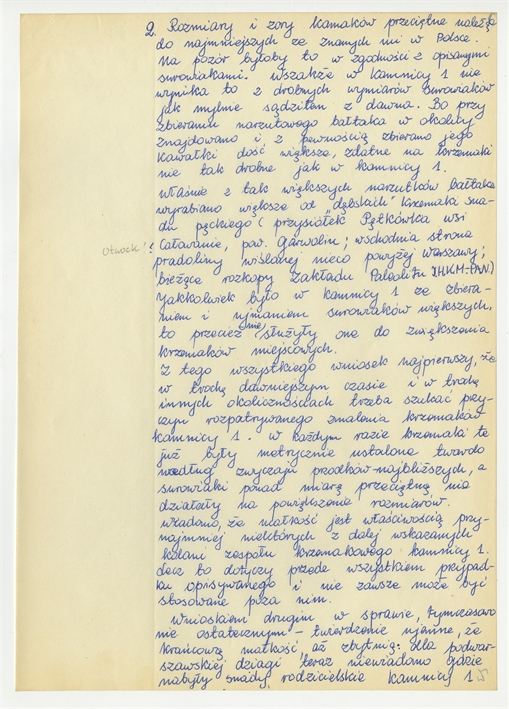 2. Rozmiary i zory kamaków przeciętne należą
do najmniejszych ze znanych mi w Polsce.
Na pozór byłoby to w zgodności z opisanymi
surowiakami. Wszakże w kamnicy 1 nie
wynika to z drobnych wymiarów surowiaków
jak mylnie sądziłem z dawna. Bo przy
zbieraniu narzutowego bałtaka w okolicy
znajdowano i z pewnością zbierano jego
kawałki dość większe, zdatne na krzemaki
nie tak drobne jak w kamnicy 1.
Właśnie z tak większych narzutków bałtaka
wyrabiano większe od "dębskich" krzemaki sna-
du pęckiego (przysiółek Pętkówka wsi
Otwock! ? Całowanie, pow. Garwolin; wschodnia strona
pradoliny wiślanej nieco powyżej Warszawy;
bieżące rozkopy Zakładu Paleolitu IHKM-PAN.)
Jakkolwiek było w kamnicy 1 ze zbiera-
niem i ujmaniem surowiaków większych,
to przecież nie służyły one do zwiększenia
krzemaków miejscowych.
Z tego wszystkiego wniosek najpierwszy, że
w trochę dawniejszym czasie i w trochę
innych okolicznościach trzeba szukać przy-
czyn rozpatrywanego zmalenia krzemaków
kamnicy 1. W każdym razie krzemaki te
już były metrycznie ustalone twardo
według zwyczaju przodków najbliższych, a
surowiaki ponad miarę przeciętną nie
działały na powiększenie rozmiarów.
Wiadomo, że małkość jest właściwością przy-
najmniej niektórych z dalej wskazanych
kolani zespołu krzemakowego kamnicy 1.
Lecz to dotyczy przede wszystkiem przypad-
ku opisywanego i nie zawsze może być
stosowane poza nim.
Wnioskiem drugim w sprawie, tymczasowo
nie ostatecznym – twierdzenie ujemne, że
krańcową małkość, aż zbytnią dla podwar-
szawskiej dziagi teraz niewiadomo gdzie
nabyły snady rodzicielskie kamnicy 1.